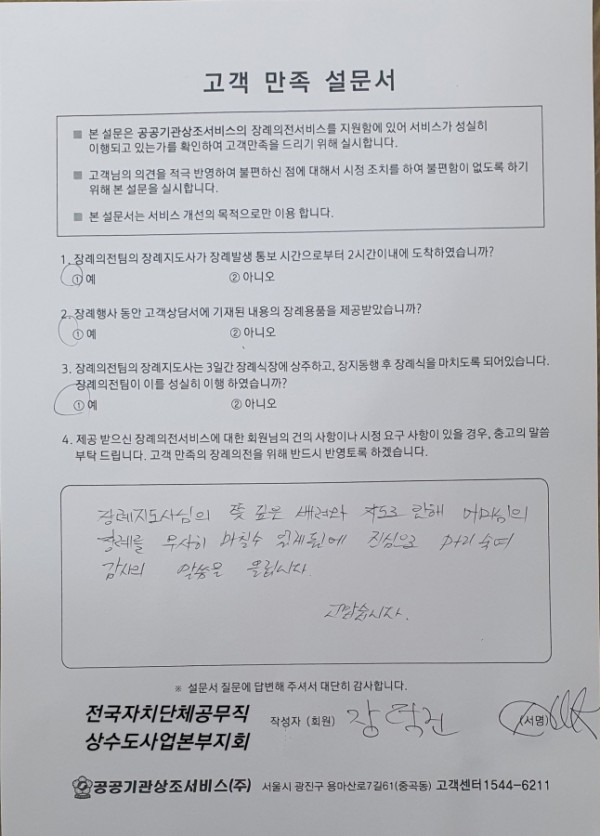 고객 만족 설문서
■ 본 설문은 공공기관상조서비스의 장례의전서비스를 지원함에 있어 서비스가 성실히
이행되고 있는가를 확인하여 고객만족을 드리기 위해 실시합니다.
■ 고객님의 의견을 적극 반영하여 불편하신 점에 대해서 시정 조치를 하여 불편함이 없도록 하기
위해 본 설문을 실시합니다.
■ 본 설문서는 서비스 개선의 목적으로만 이용 합니다.
1. 장례의전팀의 장례지도사가 장례발생 통보 시간으로부터 2시간이내에 도착하였습니까?
① 예 ② 아니오
2. 장례행사 동안 고객상담서에 기재된 내용의 장례용품을 제공받았습니까?
① 예 ② 아니오
3. 장례의전팀의 장례지도사는 3일간 장례식장에 상주하고, 장지동행 후 장례식을 마치도록 되어있습니다.
장례의전팀이 이를 성실히 이행 하였습니까?
① 예 ② 아니오
4. 제공 받으신 장례의전서비스에 대한 회원님의 건의 사항이나 시정 요구 사항이 있을 경우, 충고의 말씀
부탁 드립니다. 고객 만족의 장례의전을 위해 반드시 반영토록 하겠습니다.
장례지도사님의 뜻 깊은 배려와 인해 어머님의
장례를 무사히 마칠수 있게됨에 진심으로 머리숙여
감사의 말씀을 드립니다.
고맙습니다.
※ 설문서 질문에 답변해 주셔서 대단히 감사합니다.
전국자치단체공무직
상수도사업본부지회
작성자 (회원) 장 (서명)
공공기관상조서비스(주) 서울시 광진구 용마산로7길61(중곡동) 고객센터1544-6211